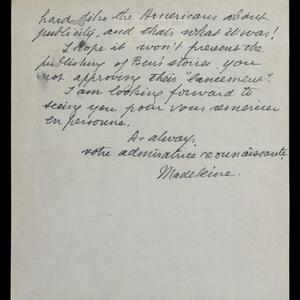 hard like the Americans about
publicity, and that's what it was!
I hope it won't prevent the
publishing of Ben's stories, you
not approving their "lancement".
I am looking forward to
seeing you pour vous remercier
en personne.
As always,
votre admiratrice reconnaissante,
Madeleine.